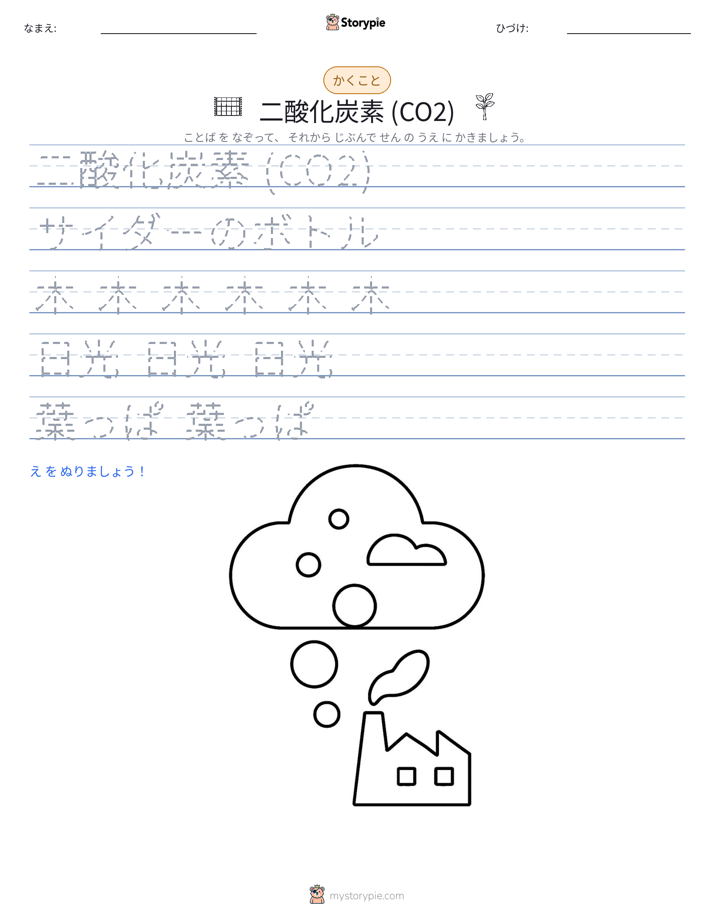 なまえ:
Storypie
ひづけ:
かくこと
二酸化炭素 (CO2)
ことば を なぞって、 それから じぶんで せん の うえ に かきましょう。
二酸化炭素 (CO2)
サイダーのボトル
木 木 木 木 木 木
日光 日光 日光
葉っぱ 葉っぱ
え を ぬりましょう！
mystorypie.com